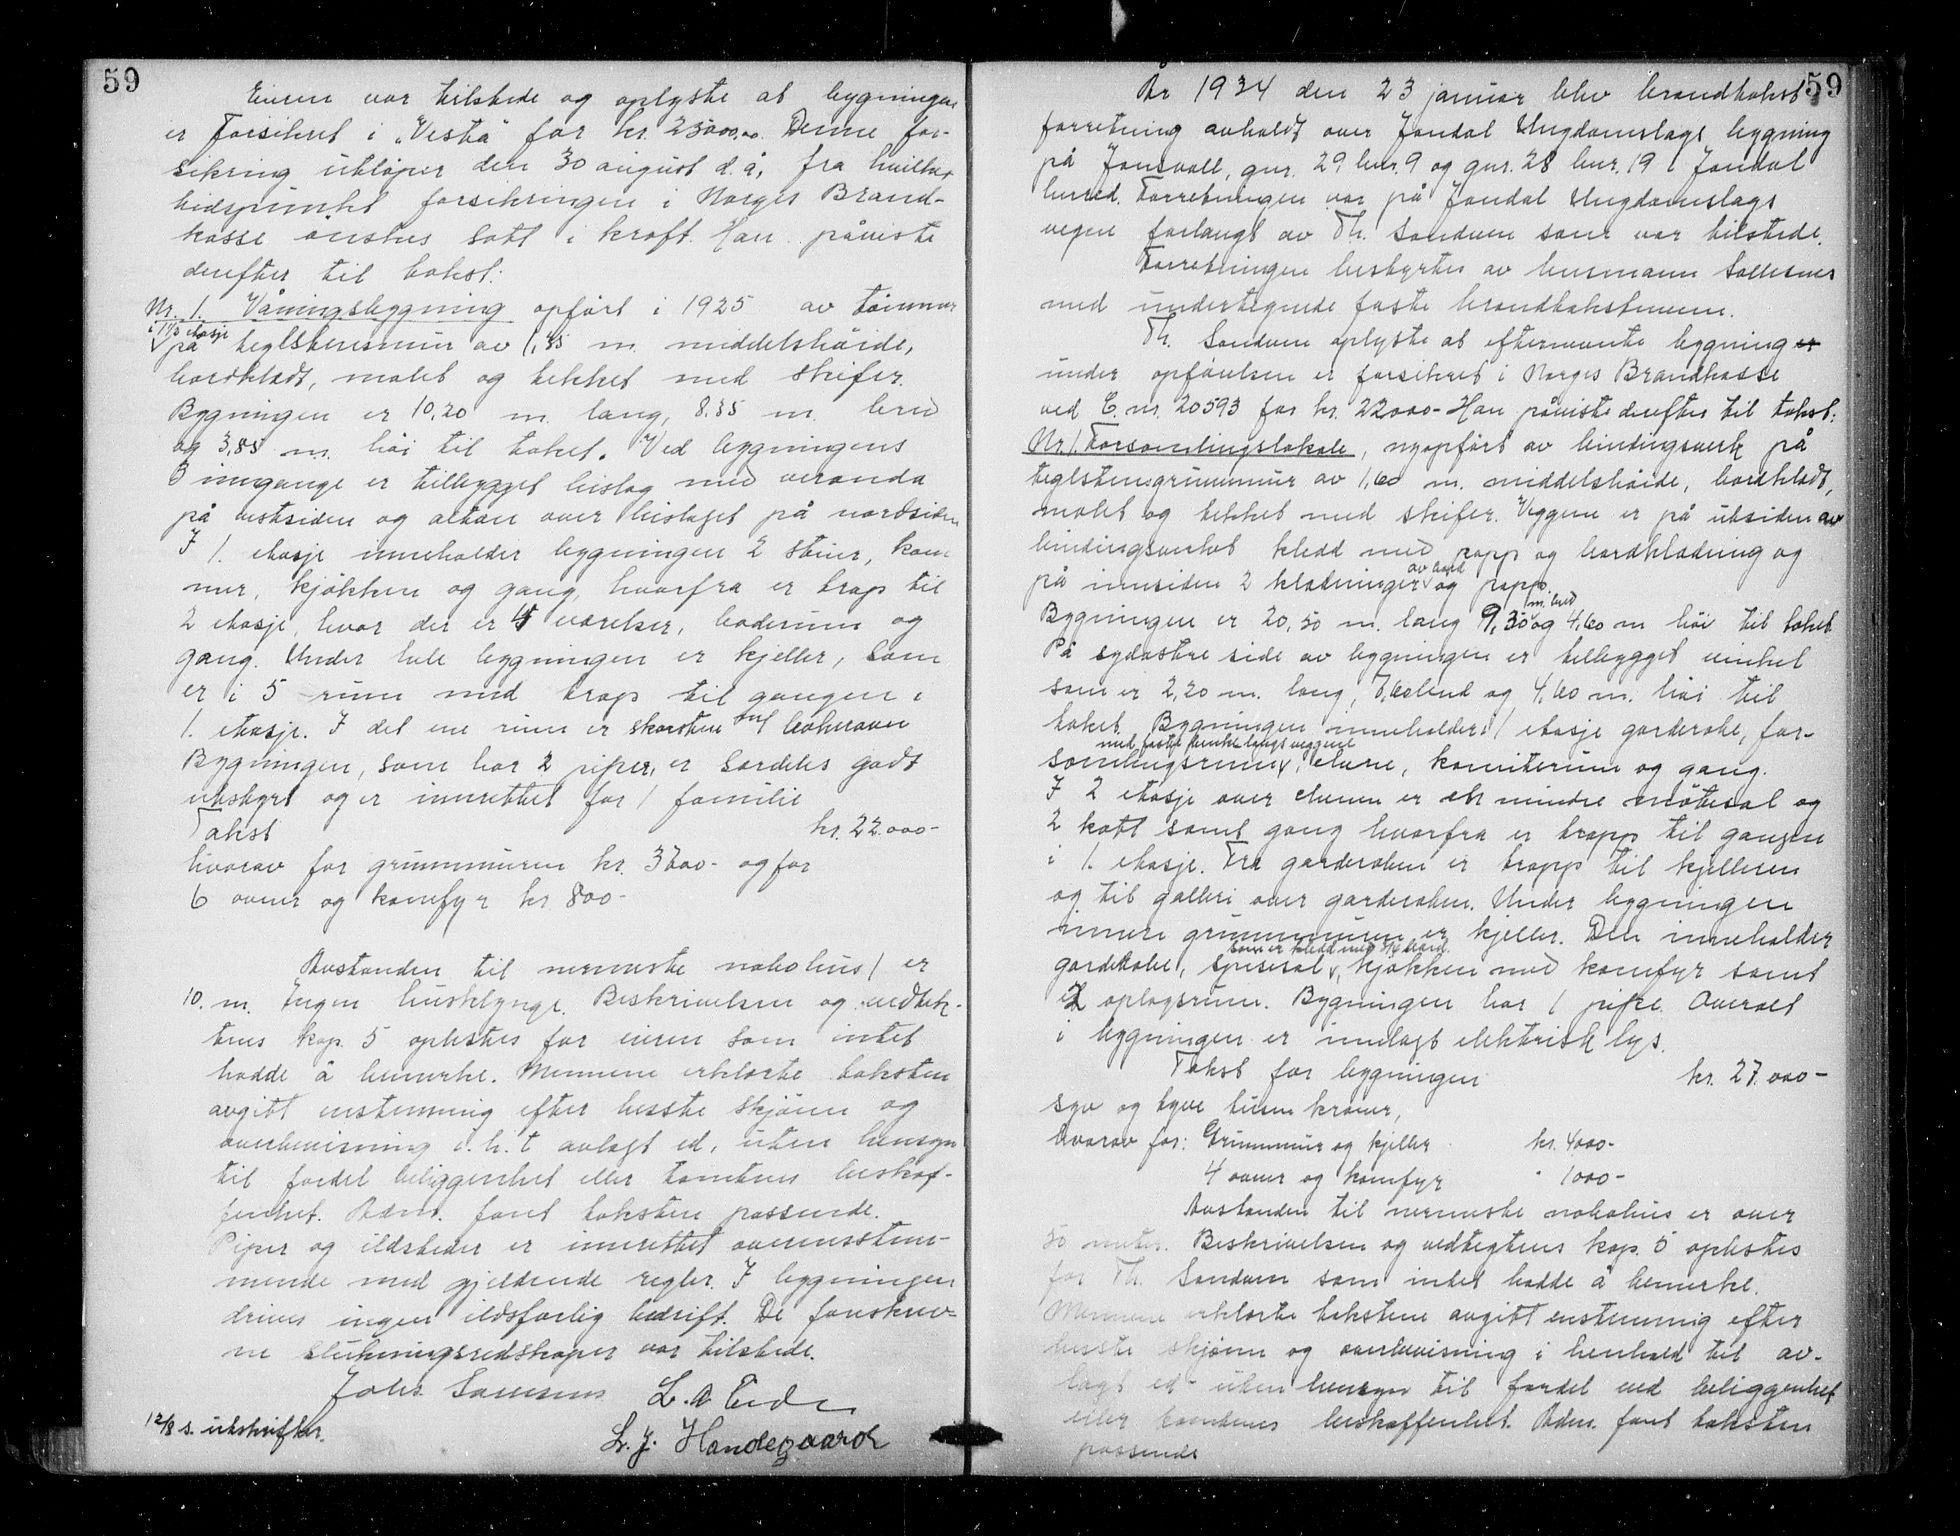 59
Eieren var tilstede og oplyste at bygningen
er forsikret i "Vesta" for kr. 23000,00. Denne for-
sikring utløper den 30 august d.å, fra hvilket
tidspunkt forsikringen i Norges Brand-
kasse ønskes satt i kraft. Han påviste
derefter til takst:
Nr. 1. Våningsbygning opført i 1925 av tømmer
i 1 1/2 etasje
på teglstensmur av 1,45 m. middelshøide,
bordklædt, malet og tekket med skifer.
Bygningen er 10,20 m. lang, 8.35 m. bred
og 3,85 m. høi til taket. Ved bygningens
3 innganger er tilbygget bislag med veranda
på vestsiden og altan over bislaget på nordsiden
I 1. etasje inneholder bygningen 2 stuer, kam
mer, kjøkken og gang, hvorfra er trap til
2 etasje, hvor der er 4 værelser, baderum og
gang. Under hele bygningen er kjeller, som
er i 5 rum med trap til gangen i
1. etasje. I det ene rum er skorsten m/ bakerovn
Bygningen, som har 2 piper, er særdeles godt
utstyrt og er innrettet for 1 familie
Takst kr. 22.000-
hvorav for grunnmuren kr. 3000- og for
6 ovner og komfyr kr 800-
Avstanden til nermeste nabohus / er
10. m. Ingen husklynge. Beskrivelsen og vedtek-
tens kap. 5 oplæstes for eieren som intet
hadde å bemerke. Mennene erklærte taksten
avgitt enstemmig efter beste skjønn og
overbevisning i.h.t avlagt ed, uten hensyn
til fordel beliggenhet eller tomtens beskaf-
fenhet. Adm. fant taksten passende.
Piper og ildsteder er innrettet overensstem-
mende med gjeldende regler. I bygningen
drives ingen ildsfarlig bedrift. De foreskrev-
ne slukningsredskaper var tilstede.
Johs. Samsons L. A Eide
12/8 s. utskrifter. L. J. Handegaard
59
År 1934 den 23 januar blev brandtakst
forretning avholdt over Jondal Ungdomslags bygning
på Jonsvoll, gnr. 29 bnr. 9 og gnr. 28 bnr. 19 i Jondal
herred. Forretningen var på Jondal Ungdomslags
vegne forlangt av Th. Sandven som var tilstede.
Forretningen bestyrtes av lensmann Sollesnes
med undertegnede faste brandtakstmenn.
Th. Sandven oplyste at eftermevnte bygning
under opførelsen er forsikret i Norges Brandkasse
ved C. nr. 20593 for kr. 22000- Han påviste derefter til takst:
Nr. 1. Forsamlingslokale, nyopført av bindingsverk på
teglstensgrunnmur av 1,60 m. middelshøide, bordklædt,
malet og tekket med skifer. Veggene er på utsiden av
bindingsverket kledd med papp og bordklædning og
på innsiden 2 klædninger av bord og papp.
Bygningen er 20,50 m. lang 9,30 m. bred og 4,60 m høi til taket
På sydøstre side av bygningen er tilbygget vinkel
som er 2,20 m. lang, 7,60 bred og 4,60 m. høi til
taket. Bygningen inneholder i 1 etasje garderobe, for-
med faste benker langs veggene
samlingsrum, scene, komiterum og gang.
I 2 etasje over scenen er en mindre møtesal og
2 kott samt gang hvorfra er trapp til gangen
i 1. etasje. Fra garderoben er trapp til kjelleren
og til galleri over garderoben. Under bygningen
innen grunnmuren er kjeller. Den inneholder
som er kledd med 3/4 bord
garderobe, spisesal, kjøkken med komfyr samt
2 oplagsrum. Bygningen har 1 pipe. Overalt
i bygningen er innlagt elektrisk lys.
Takst for bygningen kr. 27.000-
syv og tyve tusen kroner,
hvorav for: Grunnmur og kjeller kr. 4000-
4 ovner og komfyr " 1000-
Avstanden til nermeste nabohus er over
50 meter. Beskrivelsen og vedtegtens kap. 5 oplestes
for Th. Sandven som intet hadde å bemerke.
Mennene erklærte takstene avgitt enstemmig efter
beste skjønn og overbevisning i henhold til av-
lagt ed uten hensyn til fordel ved beliggenhet
eller tomtens beskaffenhet. Adm. fant taksten
passende